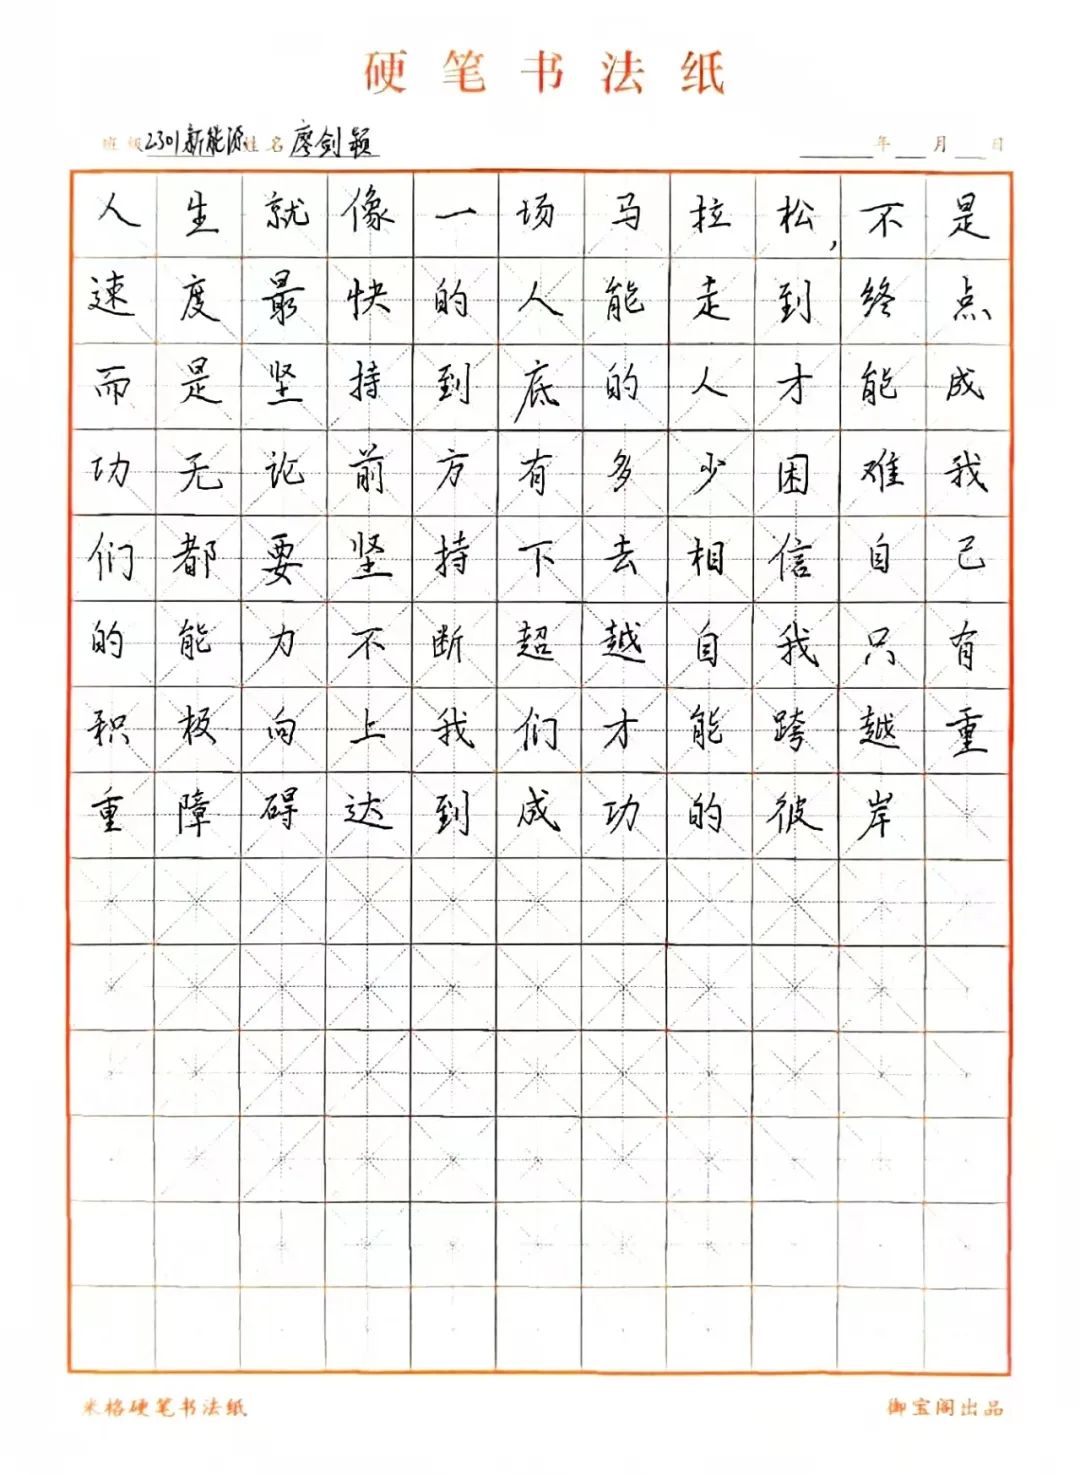 硬笔书法纸
班级 2301新能源 姓名 廖剑颖 年 月 日
人生就像一场马拉松,不是
速度最快的人能走到终点
而是坚持到底的人才能成
功无论前方有多少困难我
们都要坚持下去相信自己
的能力不断超越自我只有
积极向上我们才能跨越重
重障碍达到成功的彼岸
米格硬笔书法纸 御宝阁出品